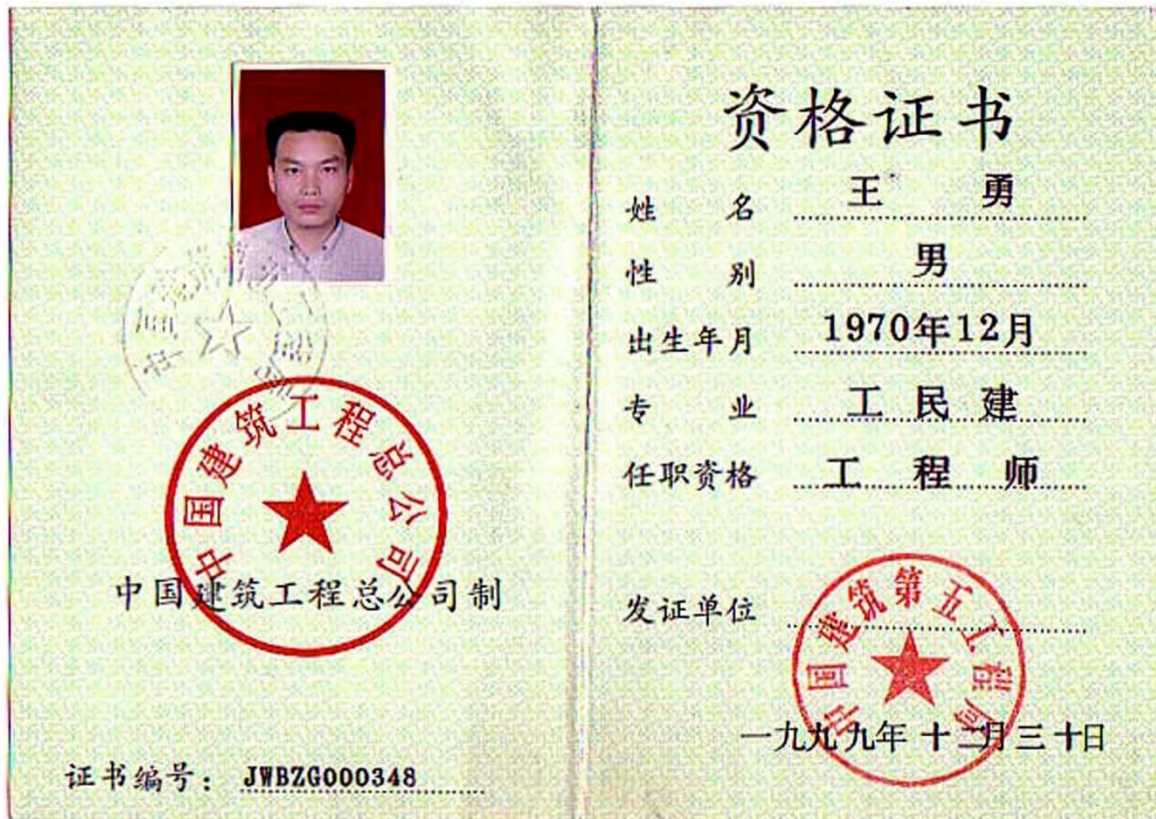 中国建筑工程总公司
中国建筑工程总公司制
证书编号：JWBZG000348
资格证书
姓名 王勇
性别 男
出生年月 1970年12月
专业 工民建
任职资格 工程师
发证单位
中国建筑第五工程局
一九九九年十二月三十日